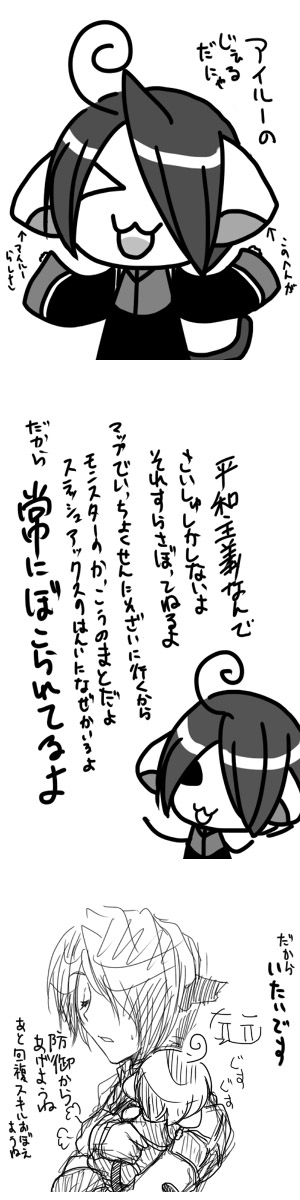 アイルーの
じぇる
だにゃ
このへんが
アイルー
らしさ
平和主義なんで
さいしゅしかしないよ
それすらさぼってねるよ
マップでいっちょくせんにめざいに行くから
モンスターのかっこうのまとだよ
スラッシュアックスのはんいになぜかいるよ
だから
常にぼこられてるよ
だから
いたいです
ぐす
ぐす
防御からっと
あげようね
あと回複スキルおぼえ
ようね